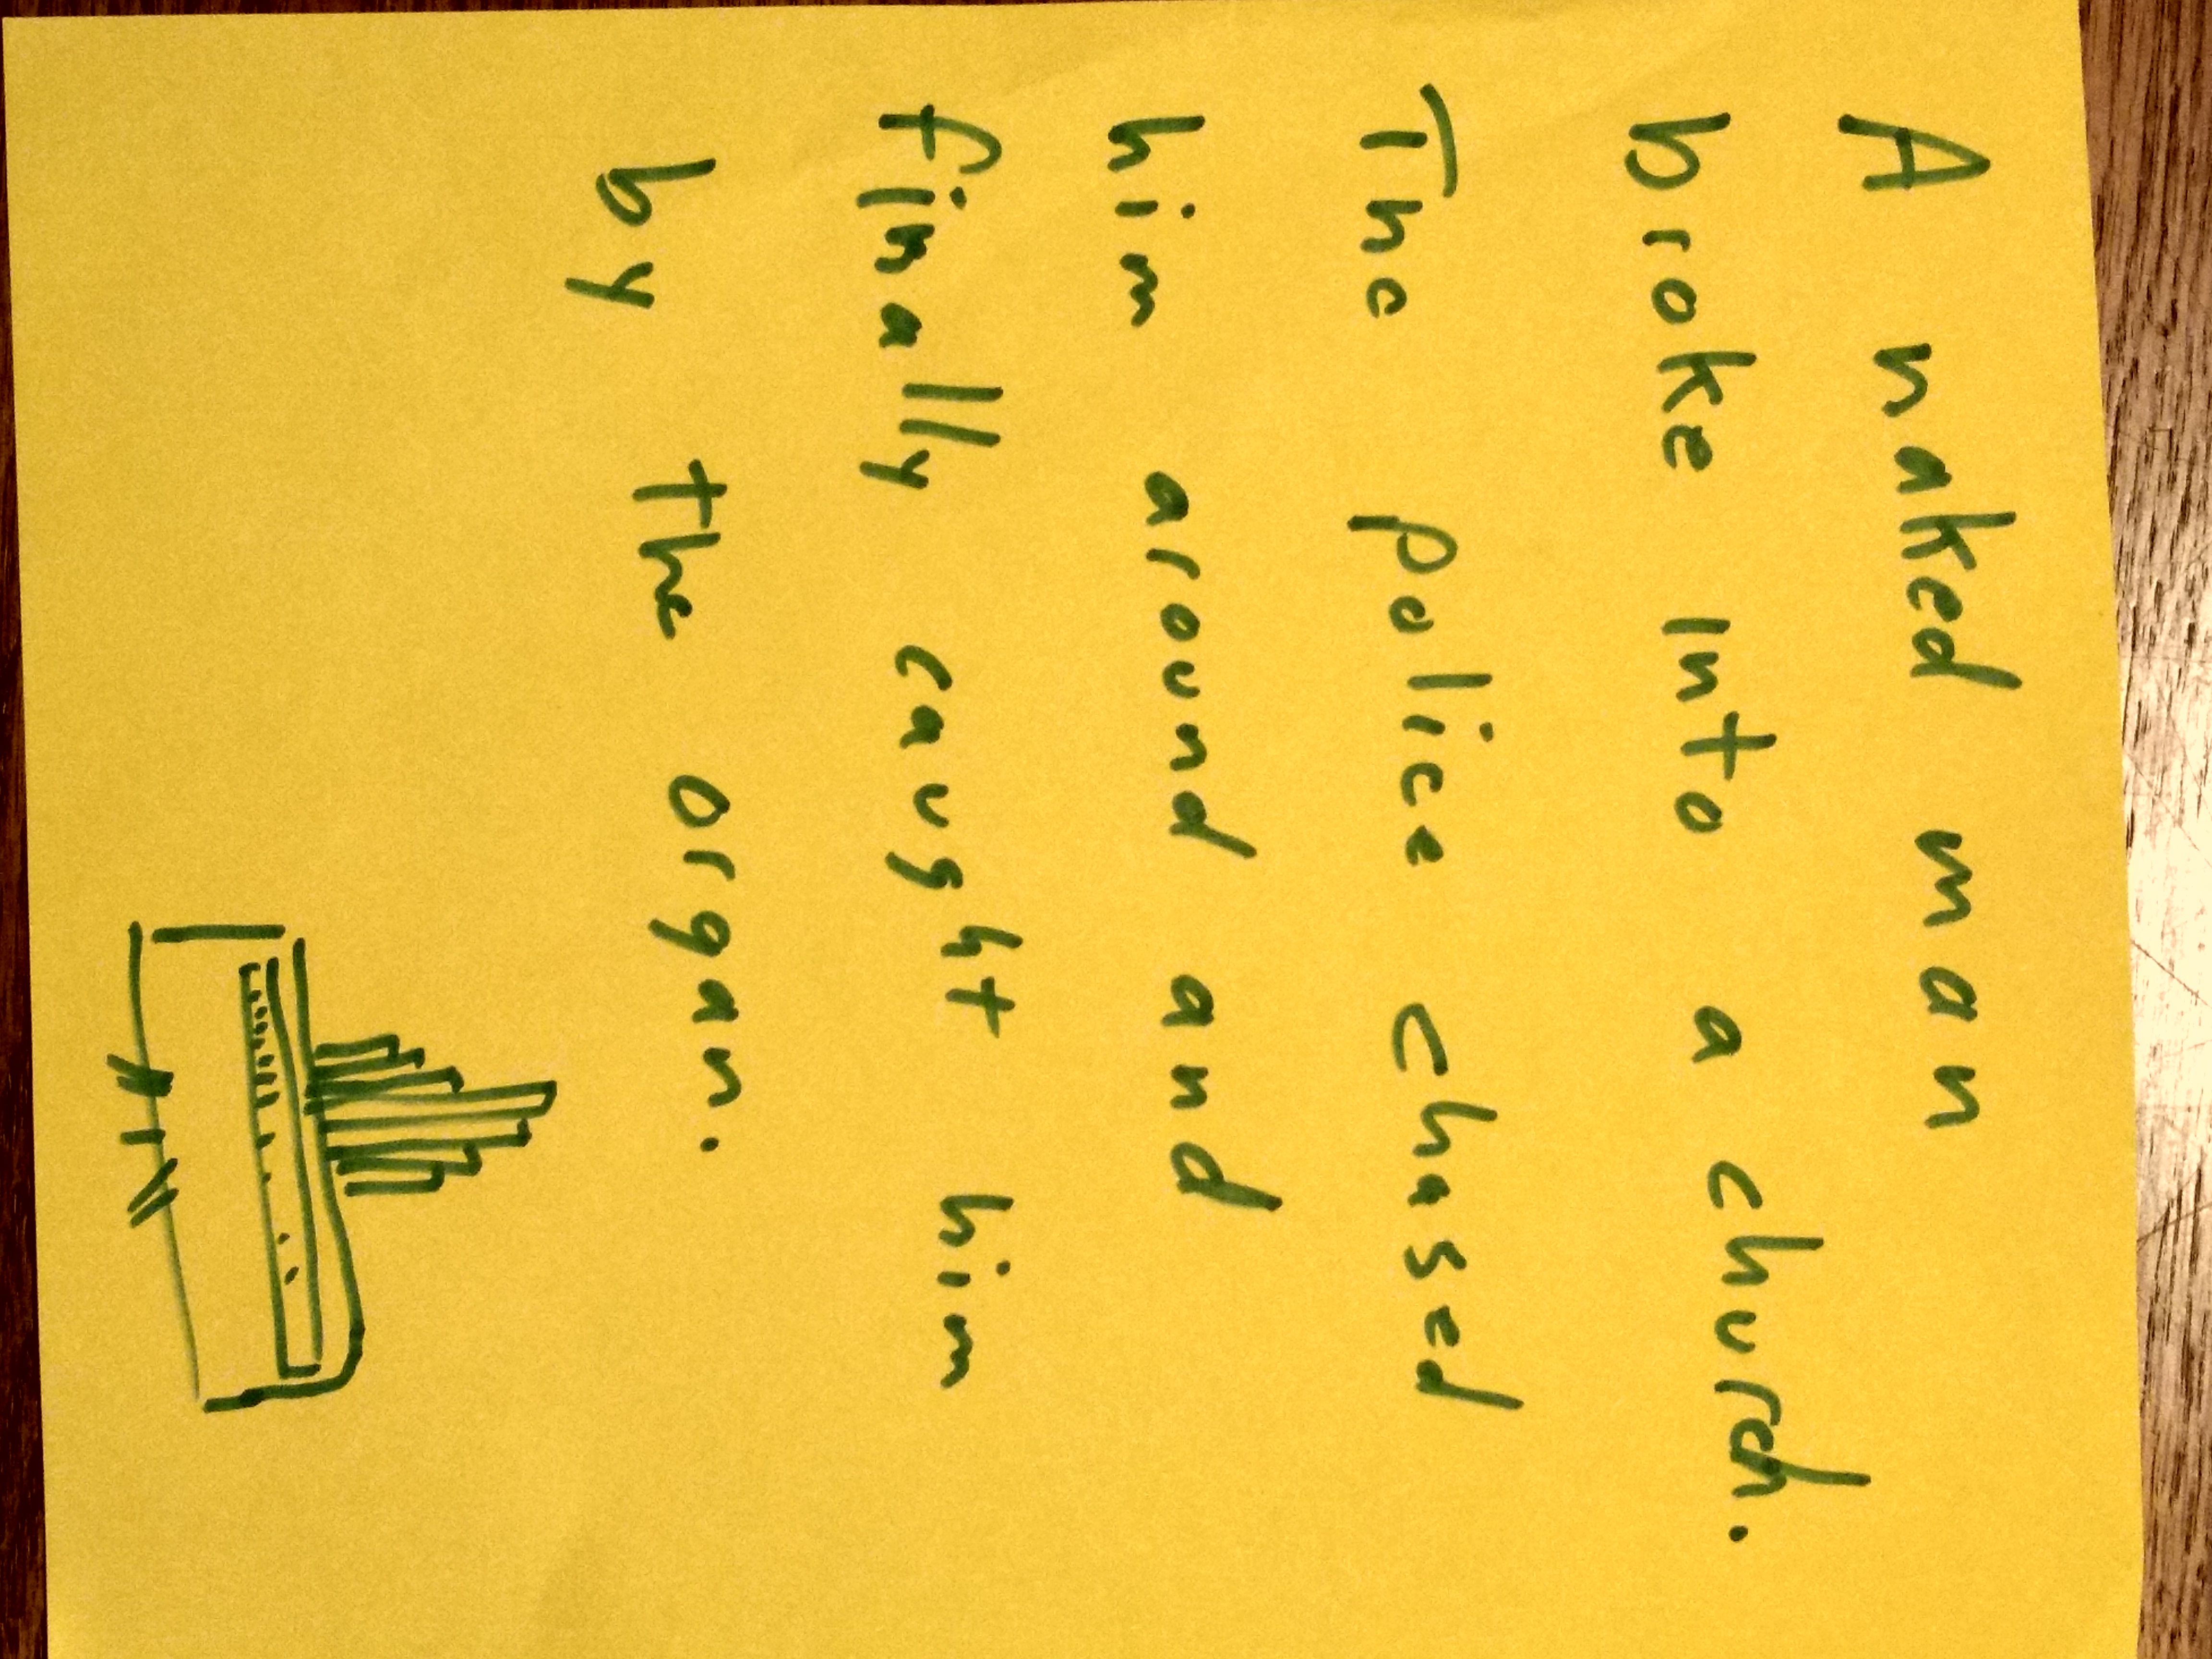 A naked man
broke into a church.
The police chased
him around and
finally caught him
by the organ.